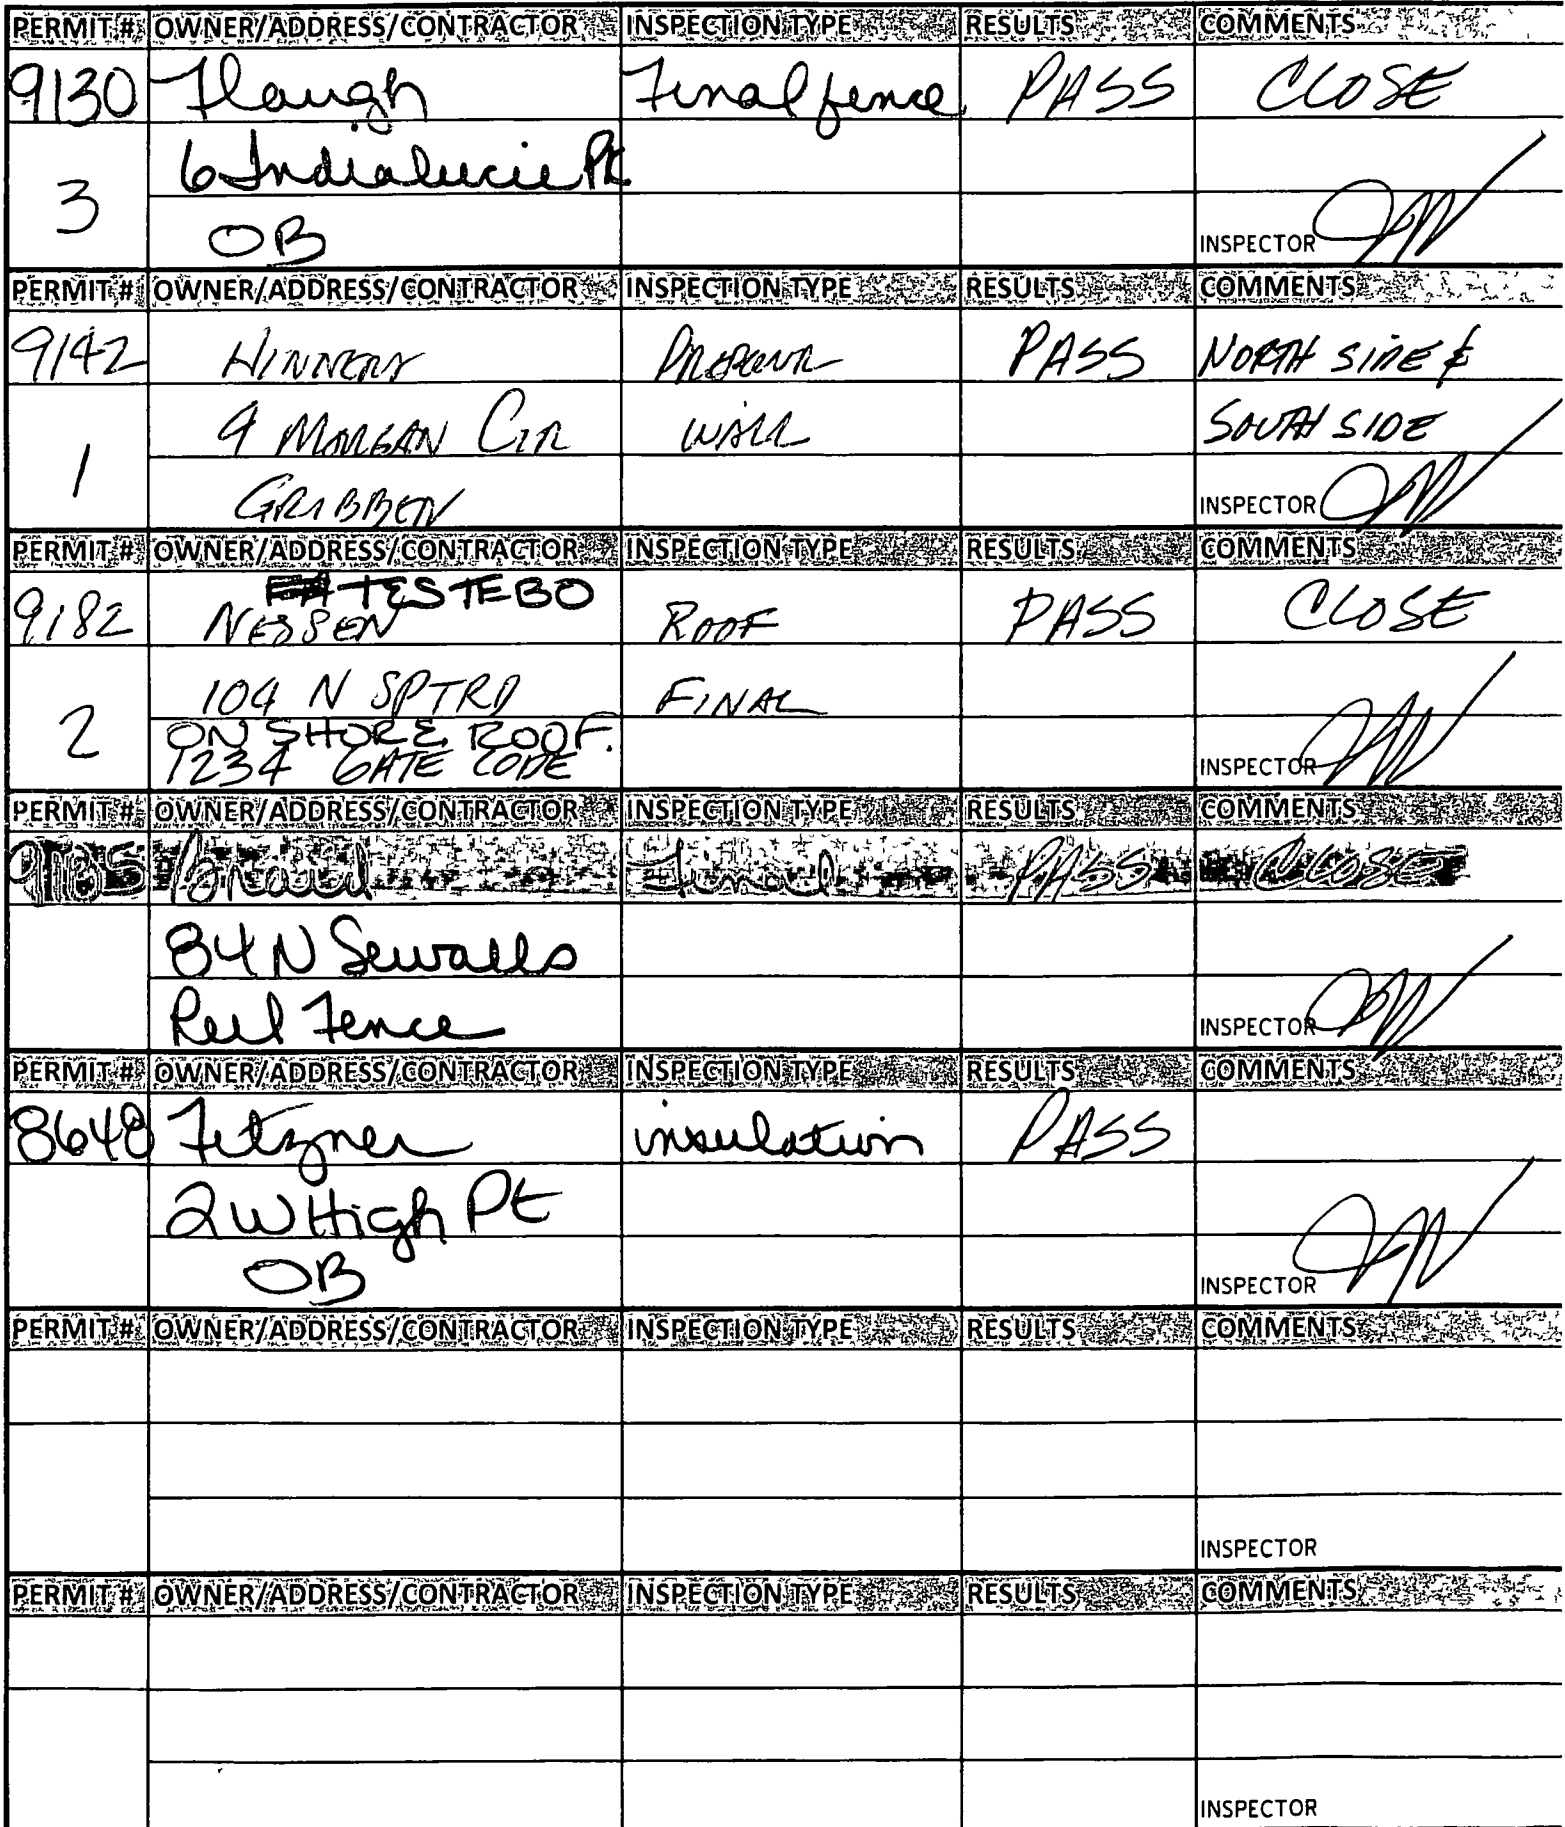 PERMIT # OWNER/ADDRESS/CONTRACTOR INSPECTION TYPE RESULTS COMMENTS
9130 Flaugh Final fence PASS CLOSE
6 Indialucie Pk
3
OB INSPECTOR
PERMIT # OWNER/ADDRESS/CONTRACTOR INSPECTION TYPE RESULTS COMMENTS
9142 PASS NORTH SIDE &
9 MORGAN CIR WALL SOUTH SIDE
1
GRIBBEN INSPECTOR
PERMIT # OWNER/ADDRESS/CONTRACTOR INSPECTION TYPE RESULTS COMMENTS
TESTEBO
9182 NESSEN ROOF PASS CLOSE
104 N SPTRD FINAL
2
ON SHORE ROOF.
1234 GATE CODE INSPECTOR
PERMIT # OWNER/ADDRESS/CONTRACTOR INSPECTION TYPE RESULTS COMMENTS
9185 Final PASS CLOSE
84 N Sewalls
Fence INSPECTOR
PERMIT # OWNER/ADDRESS/CONTRACTOR INSPECTION TYPE RESULTS COMMENTS
8648 Fetzner insulation PASS
2 W High Pt
OB INSPECTOR
PERMIT # OWNER/ADDRESS/CONTRACTOR INSPECTION TYPE RESULTS COMMENTS
INSPECTOR
PERMIT # OWNER/ADDRESS/CONTRACTOR INSPECTION TYPE RESULTS COMMENTS
INSPECTOR